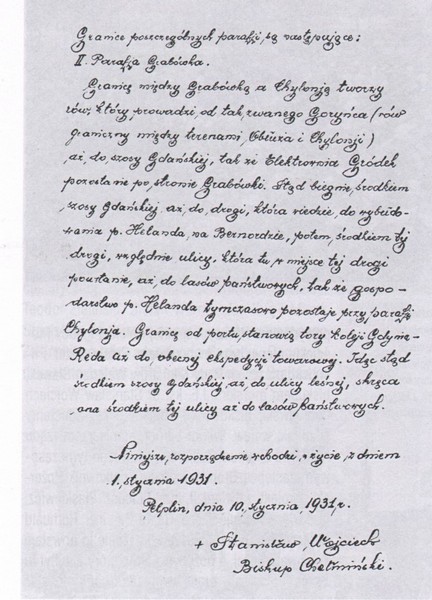 Granice poszczególnych parafji są następujące:
II. Parafja Grabówka.
Granicę między Grabówką a Chylonją tworzy
rów, który prowadzi od tak zwanego Goryńca (rów
graniczny między terenami Obłuża i Chylonji)
aż do szosy Gdańskiej, tak że Elektrownia Gródek
pozostanie po stronie Grabówki. Stąd biegnie środkiem
szosy Gdańskiej aż do drogi, która wiedzie do wybudo-
wania p. Helanda na Bernordzie, potem środkiem tej
drogi, względnie ulicy, która tu w miejsce tej drogi
powstanie, aż do lasów państwowych, tak że gospo-
darstwo p. Helanda tymczasowo pozostaje przy parafji
Chylonja. Granicę od portu stanowią tory koleji Gdynia-
Reda aż do obecnej ekspedycji towarowej. Idąc stąd
środkiem szosy Gdańskiej aż do ulicy leśnej, skręca
ona środkiem tej ulicy aż do lasów państwowych.
Niniejsze rozporządzenie wchodzi w życie z dniem
1. stycznia 1931.
Pelplin, dnia 10. stycznia 1931 r.
+ Stanisław Wojciech
Biskup Chełmiński.